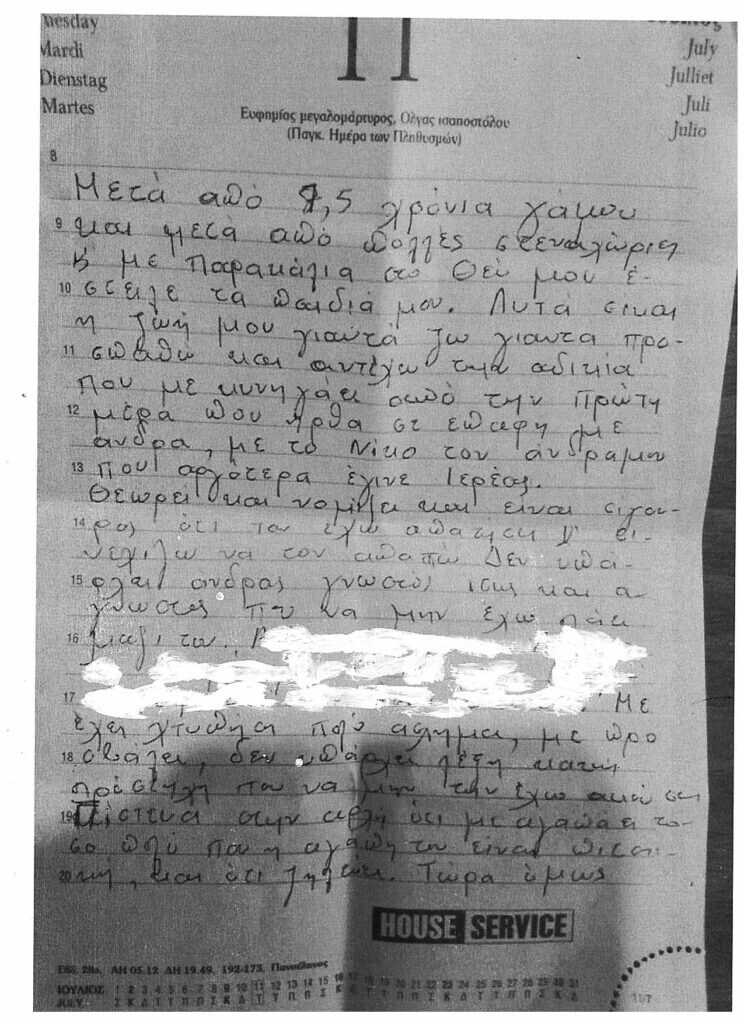 uesday
Mardi
Dienstag
Martes
11
July
Julliet
Juli
Julio
Ευφημίας μεγαλομάρτυρος, Όλγας ισαποστόλου
(Παγκ. Ημέρα των Πληθυσμών)
8
Μετά από 7,5 χρόνια γάμου
9 και μετά από πολλές στεναχώριες
κ με παρακάλια στο Θεό μου έ-
10 στειλε τα παιδιά μου. Αυτά είναι
η ζωή μου γιαυτά ζω γιαυτα προ-
11 σπαθώ και αντέχω την αδικία
που με κυνηγάει από την πρώτη
12 μέρα που ήρθα σε επαφη με
άνδρα, με το Νίκο τον άνδραμου
13 που αργότερα έγινε Ιερέας.
Θεωρεί και νομίζει και είναι σιγου-
14 ρος ότι τον έχω απατησει κ συ-
νεχίζω να τον απατώ Δεν υπά-
15 ρχει άνδρας γνωστός ίσως και α-
γνωστος που να μην έχω πάει
16 μαζί του.
17 Με
έχει χτυπήσει πολύ ασχημα, με προ
18 σβάλει, δεν υπάρχει λέξη κακιά
πρόστυχη που να μην την έχω ακούσει
19 Πίστευα στην αρχή ότι με αγαπάει το-
σο πολύ που η αγάπη του είναι
20 και ότι ζηλεύει. Τώρα όμως
HOUSE SERVICE
Εβδ. 28η, ΑΗ 05.12 ΔΗ 19.49, 192-173, Πανσέληνος
ΙΟΥΛΙΟΣ 1 2 3 4 5 6 7 8 9 10 11 12 13 14 15 16 17 18 19 20 21 22 23 24 25 26 27 28 29 30 31
JULY Σ Κ Δ Τ Τ Π Π Σ Κ Δ Τ Τ Π Π Σ Κ Δ Τ Τ Π Π Σ Κ Δ Τ Τ Π Π Σ Κ Δ
11/7